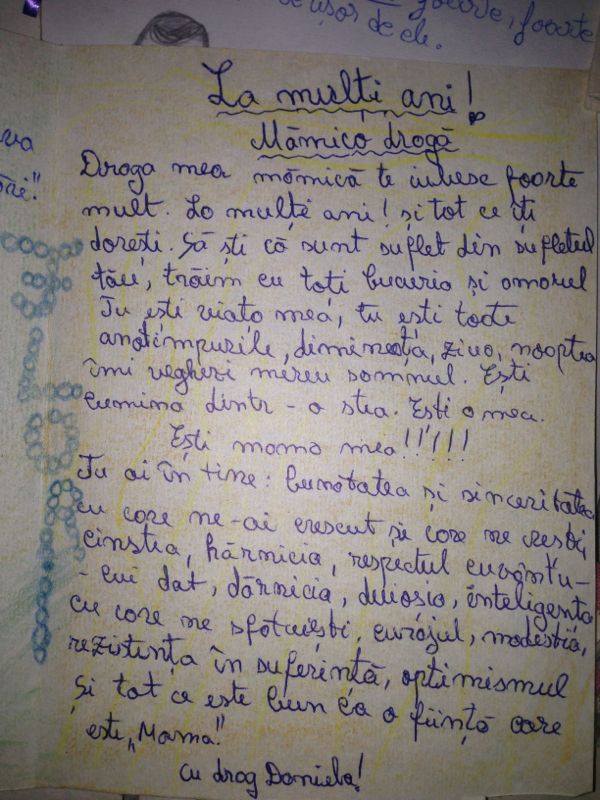 foarte, foarte
ușor de ele.
va
tăi".
La mulți ani!
Mămico dragă
Draga mea mămică te iubesc foarte
mult. La mulți ani! și tot ce îți
dorești. Să ști că sunt suflet din sufletul
tău, trăim cu toți bucuria și amorul
Tu ești viața mea, tu ești toate
anotimpurile, dimineața, ziua, noaptea
îmi veghezi mereu somnul. Ești
lumina dintr-o stea. Ești a mea.
Ești mama mea!!!!!!
Tu ai în tine: bunătatea și sinceritatea
cu care ne-ai crescut și care ne crești,
cinstea, hărnicia, respectul cuvântu-
-lui dat, dărnicia, duioșia, inteligența
cu care ne sfătuiești, curajul, modestia,
rezistența în suferință, optimismul
și tot ce este bun ca o ființă care
este „Mama".
Cu drag Daniela!